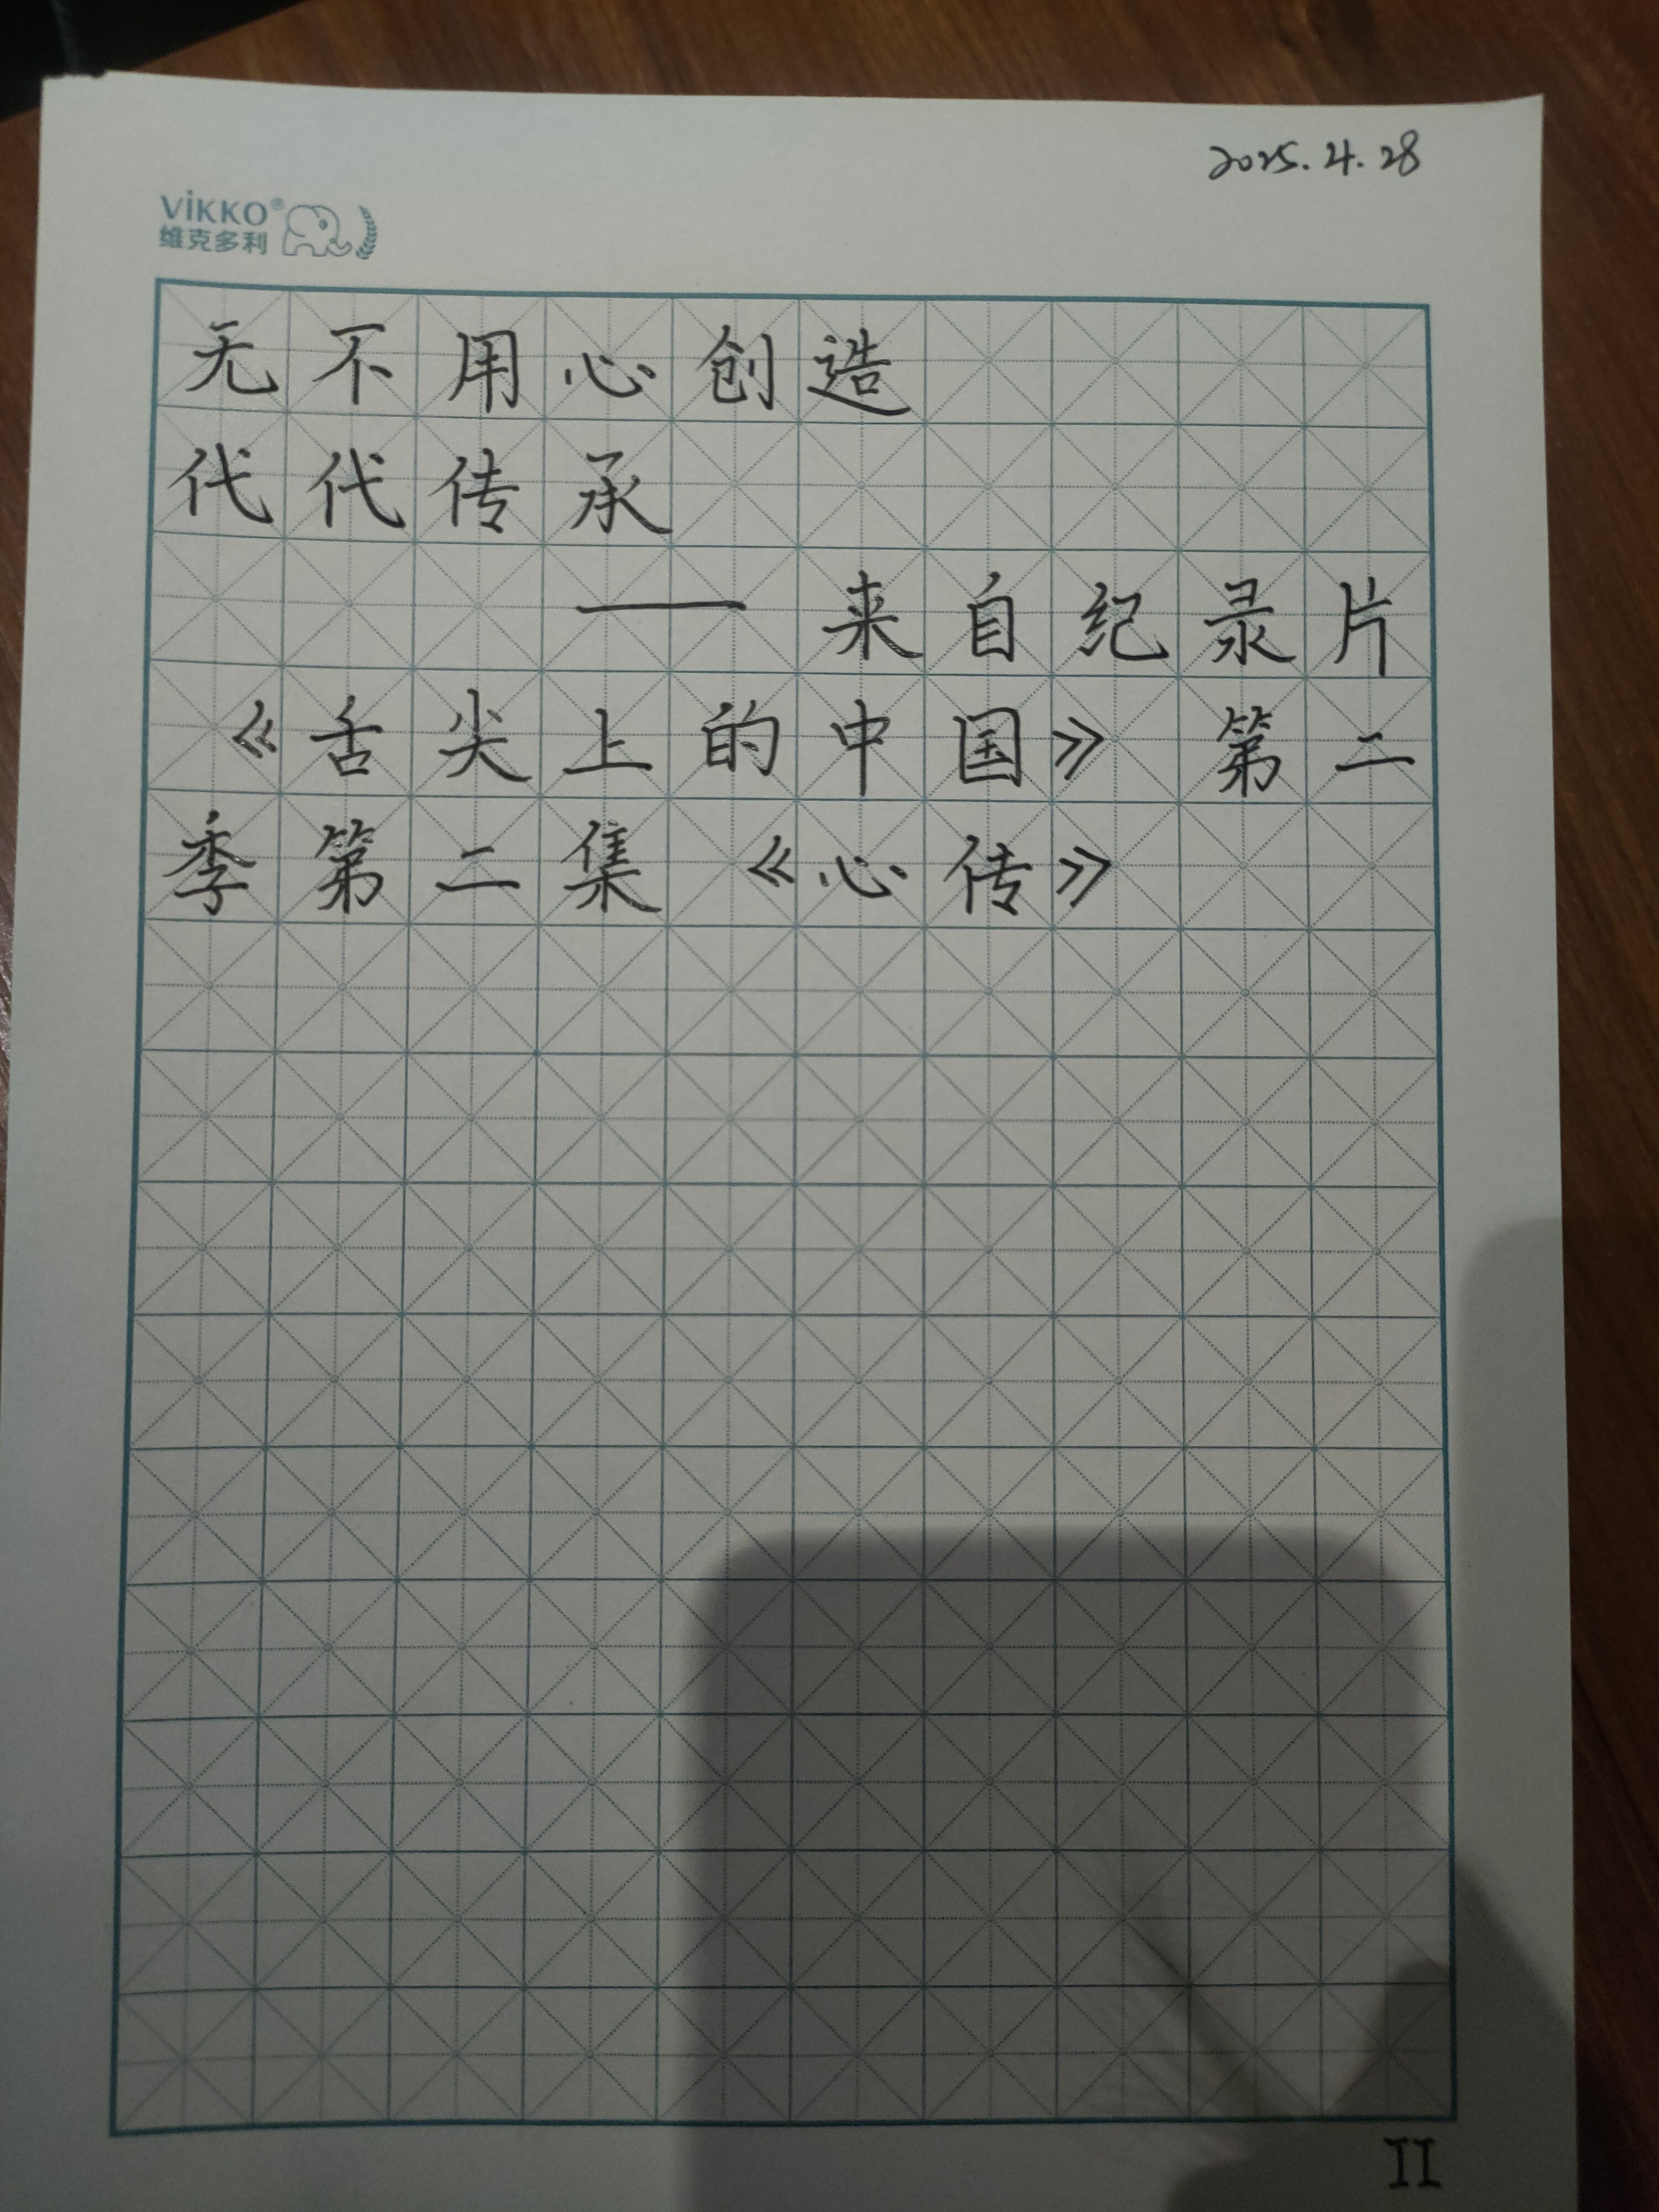 2025.4.28
VIKKO®
维克多利
无不用心创造
代代传承
——来自纪录片
《舌尖上的中国》第二
季第二集《心传》
II